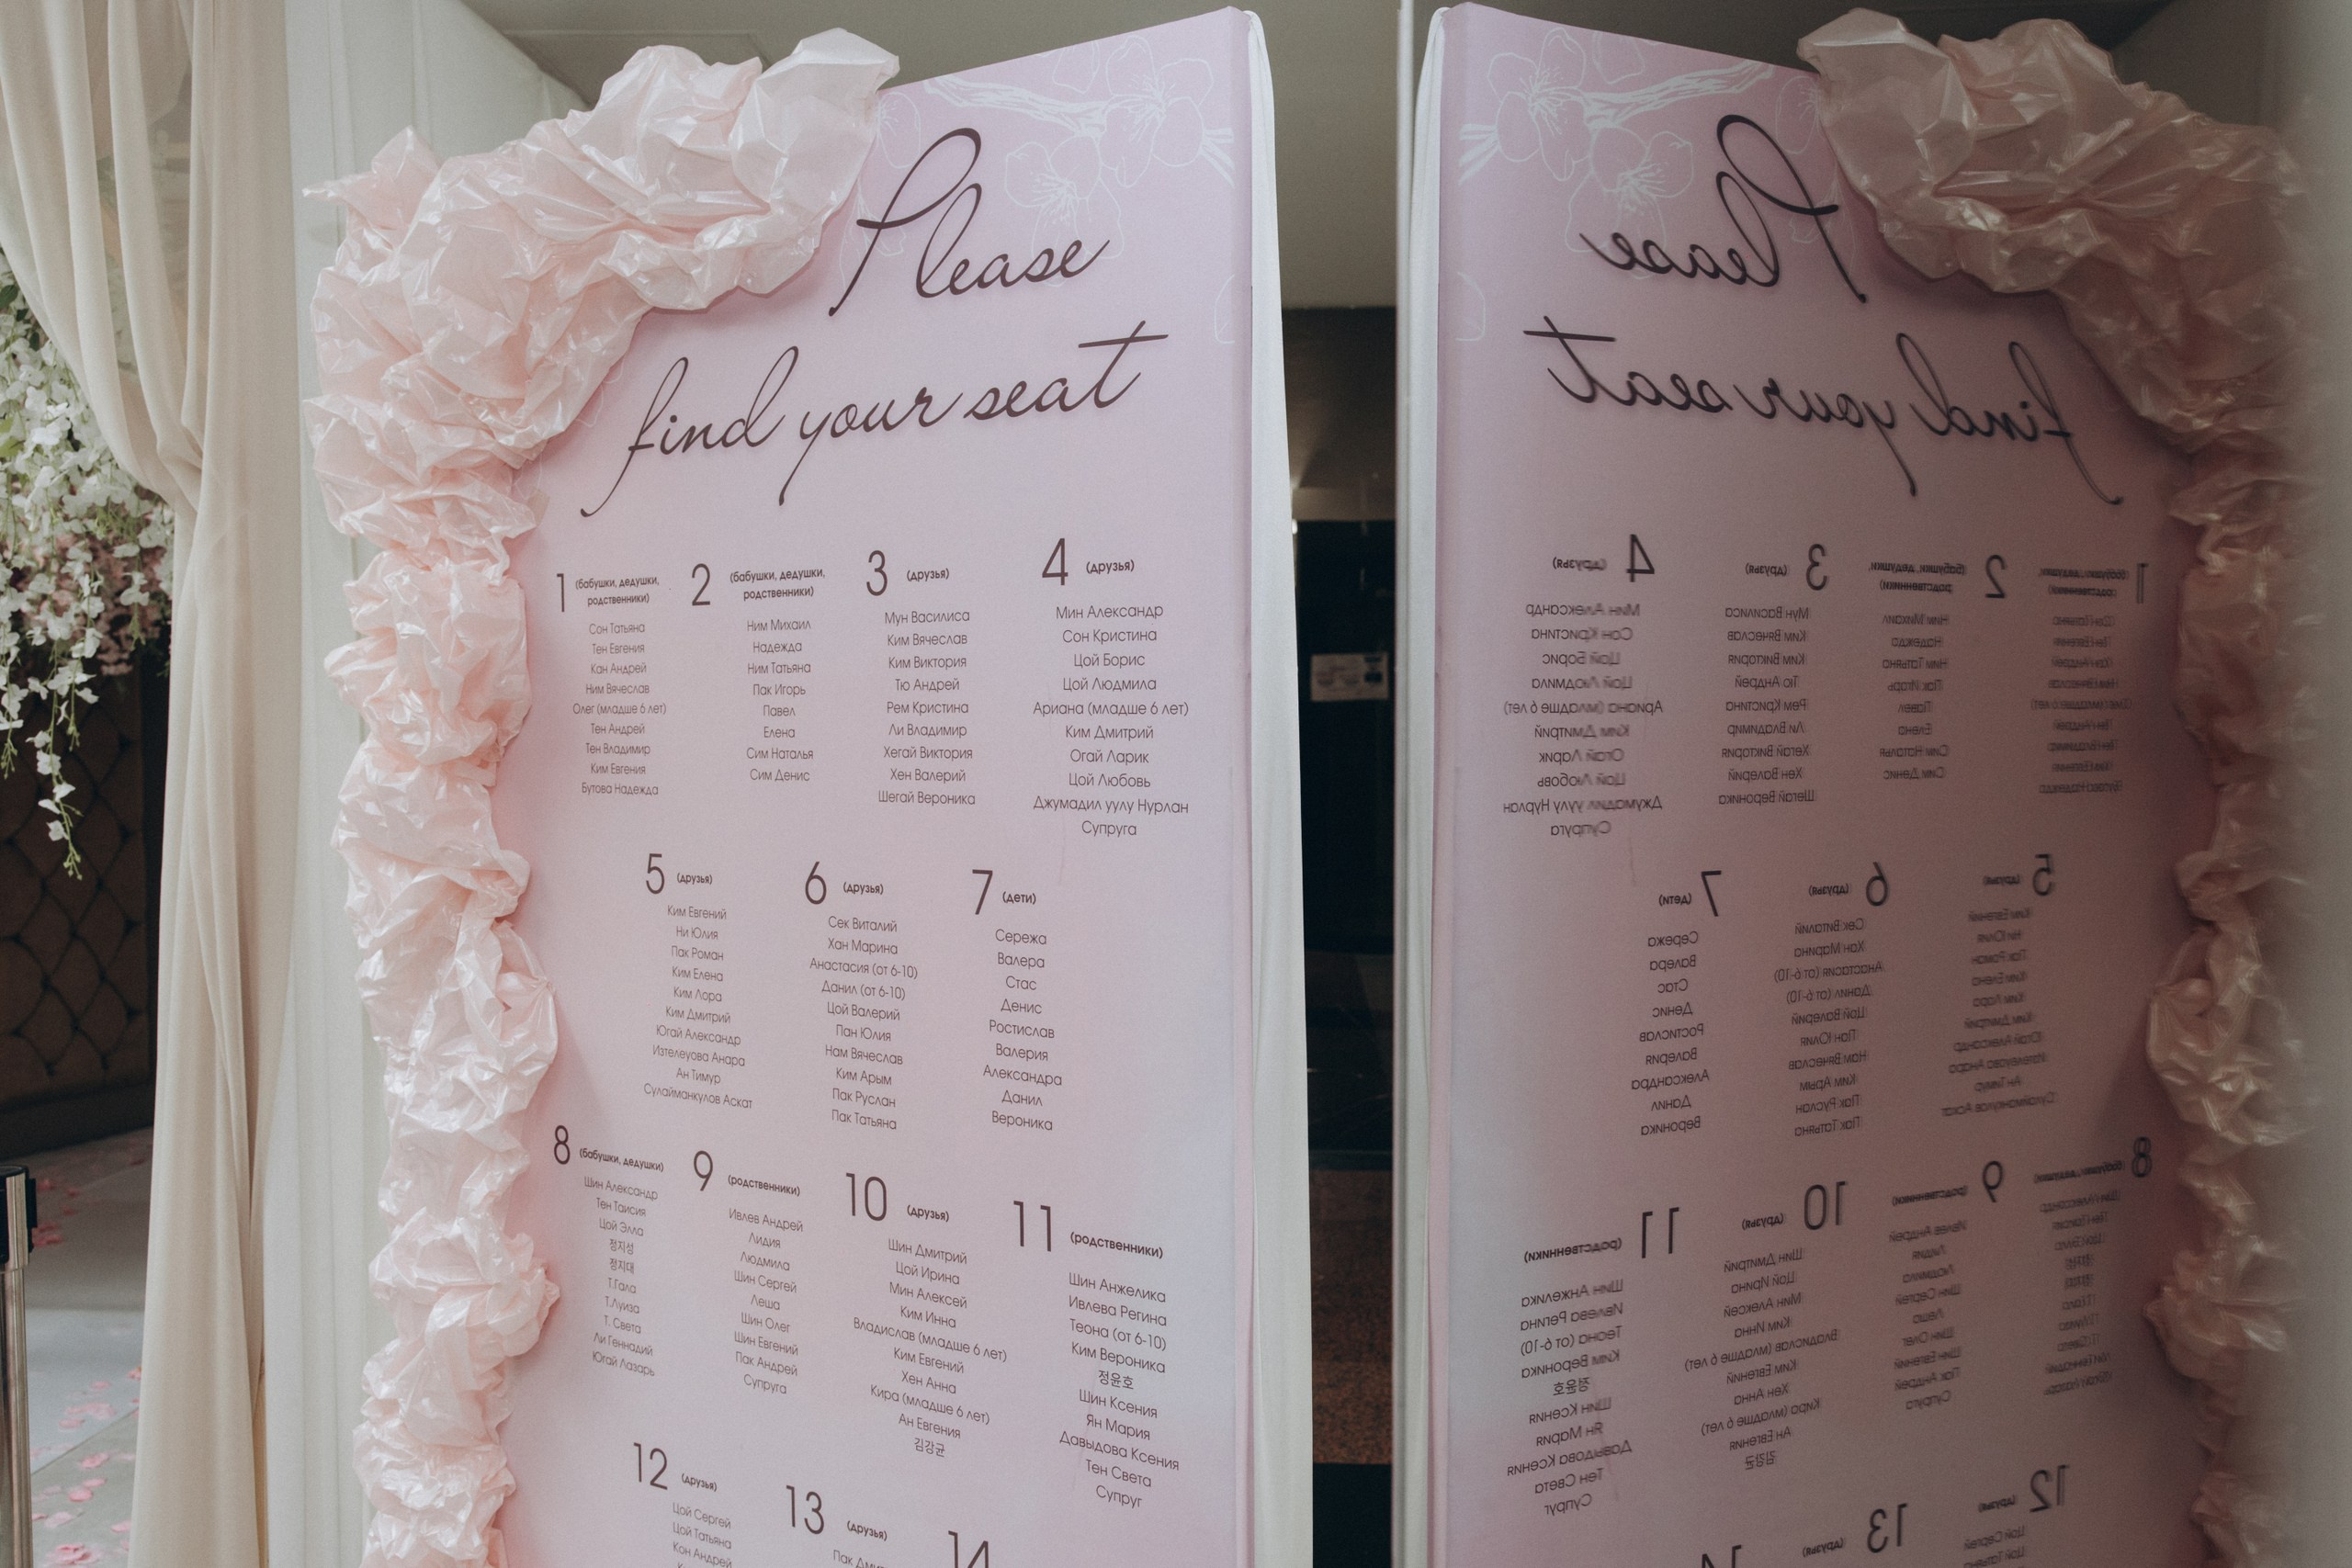 Please
find your seat
1 (бабушки, дедушки,
родственники)
Сон Татьяна
Тен Евгения
Кан Андрей
Ним Вячеслав
Олег (младше 6 лет)
Тен Андрей
Тен Владимир
Ким Евгения
Бутова Надежда
2 (бабушки, дедушки,
родственники)
Ним Михаил
Надежда
Ним Татьяна
Пак Игорь
Павел
Елена
Сим Наталья
Сим Денис
3 (друзья)
Мун Василиса
Ким Вячеслав
Ким Виктория
Тю Андрей
Рем Кристина
Ли Владимир
Хегай Виктория
Хен Валерий
Шегай Вероника
4 (друзья)
Мин Александр
Сон Кристина
Цой Борис
Цой Людмила
Ариана (младше 6 лет)
Ким Дмитрий
Огай Ларик
Цой Любовь
Джумадил уулу Нурлан
Супруга
5 (друзья)
Ким Евгений
Ни Юлия
Пак Роман
Ким Елена
Ким Лора
Ким Дмитрий
Югай Александр
Изтелеуова Анара
Ан Тимур
Сулайманкулов Аскат
6 (друзья)
Сек Виталий
Хан Марина
Анастасия (от 6-10)
Данил (от 6-10)
Цой Валерий
Пан Юлия
Нам Вячеслав
Ким Арым
Пак Руслан
Пак Татьяна
7 (дети)
Сережа
Валера
Стас
Денис
Ростислав
Валерия
Александра
Данил
Вероника
8 (бабушки, дедушки)
Шин Александр
Тен Таисия
Цой Элла
정지성
정지대
Т.Гала
Т.Луиза
Т. Света
Ли Геннадий
Югай Лазарь
9 (родственники)
Ивлев Андрей
Лидия
Людмила
Шин Сергей
Леша
Шин Олег
Шин Евгений
Пак Андрей
Супруга
10 (друзья)
Шин Дмитрий
Цой Ирина
Мин Алексей
Ким Инна
Владислав (младше 6 лет)
Ким Евгений
Хен Анна
Кира (младше 6 лет)
Ан Евгения
김강균
11 (родственники)
Шин Анжелика
Ивлева Регина
Теона (от 6-10)
Ким Вероника
정윤호
Шин Ксения
Ян Мария
Давыдова Ксения
Тен Света
Супруг
12 (друзья)
Цой Сергей
Цой Татьяна
Кон Андрей
13 (друзья)
Пак
14